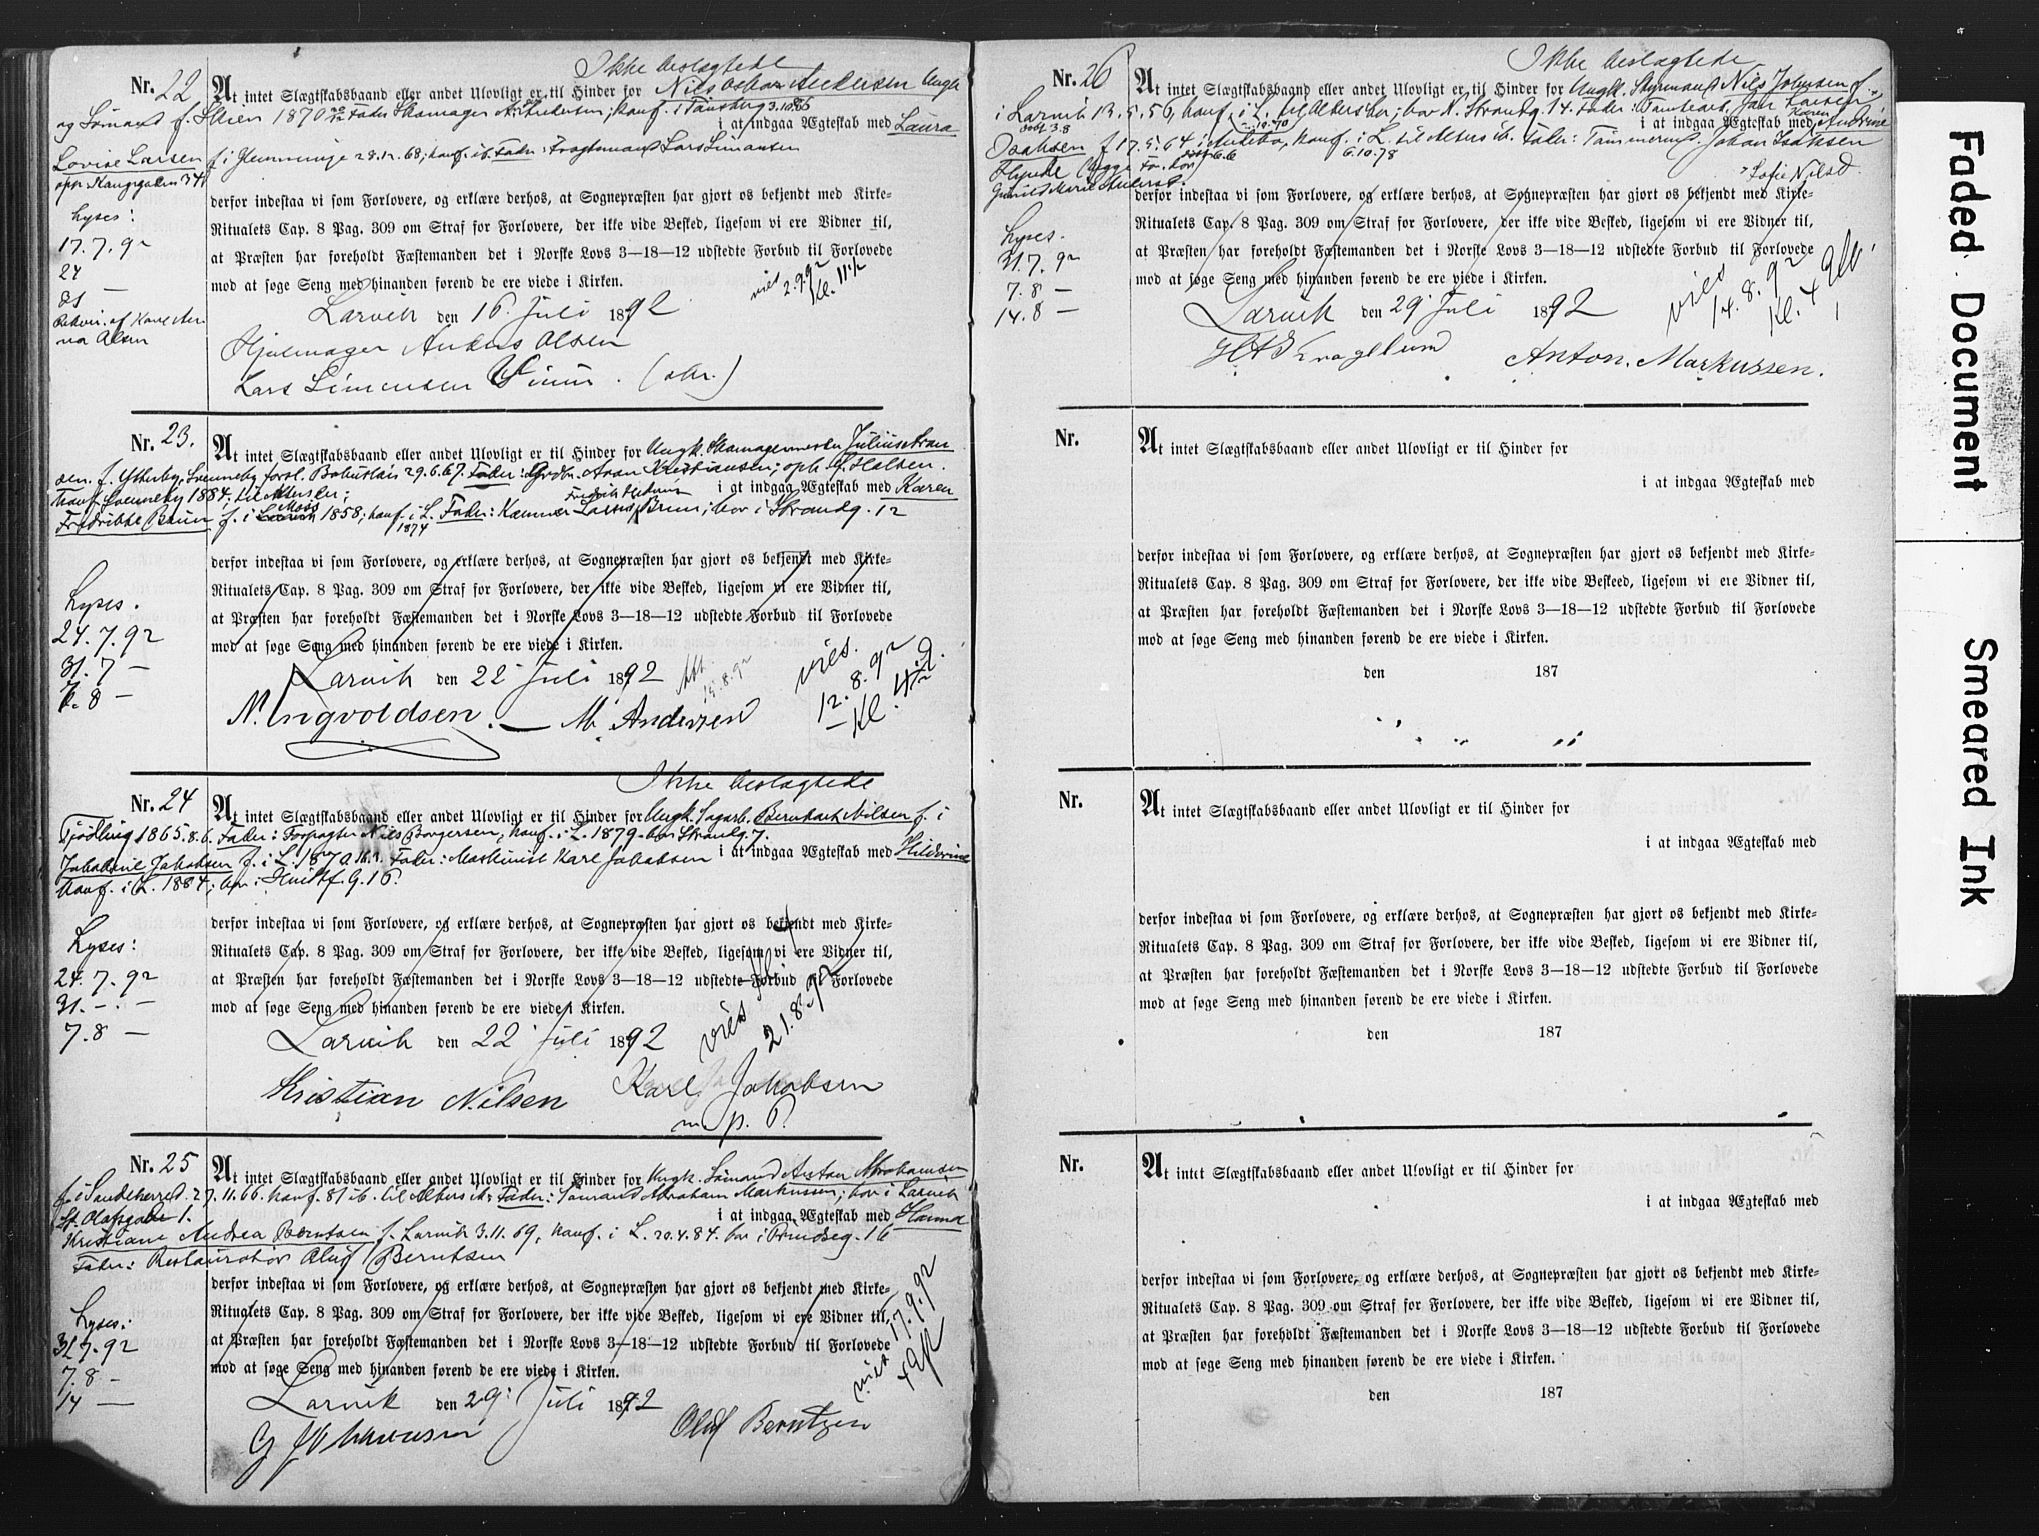 Ikke beslægtede
Nr. 22
At intet Slægtskabsbaand eller andet Ulovligt er til Hinder for Nils Oskar Andersen Ungk.
og Sömand f. Skien 1870 Fader Skomager Andersen; konf. i Tønsberg
i at indgaa Ægteskab med Laura
Lovise Larsen f. i Glemminge 28.12.68; konf. ib. Fader: Fragtemand Lars Simonsen
opp. Kongegaden 34
derfor indestaa vi som Forlovere, og erklære derhos, at Sognepræsten har gjort os bekjendt med Kirke-
Ritualets Cap. 8 Pag. 309 om Straf for Forlovere, der ikke vide Besked, ligesom vi ere Vidner til,
at Præsten har foreholdt Fæstemanden det i Norske Lovs 3—18—12 udstedte Forbud til Forlovede
mod at søge Seng med hinanden førend de ere viede i Kirken.
Lyses:
17.7.92
24
31 —
Rekvir. af Karl
Olsen
vies 2.9.92 Kl. 11½
Larvik den 16 Juli 1892
Hjulmager Anders Olsen
Lars Simensen
Nr. 23.
At intet Slægtskabsbaand eller andet Ulovligt er til Hinder for Ungk. Skomagermester Julius Aron
sen f. Ytterby, Svenneby forsl. Bohuslän 29.6.67. Fader: Grdbr. Aron Kristiansen; oph.
konf. Svenneby 1884; til Alters
i at indgaa Ægteskab med Karen
Fredrikke Bruun f. i Moss 1858; konf. i L. 1874 Fader: Kæmner Fredrik Bruun; bor i Strandg. 12
derfor indestaa vi som Forlovere, og erklære derhos, at Sognepræsten har gjort os bekjendt med Kirke-
Ritualets Cap. 8 Pag. 309 om Straf for Forlovere, der ikke vide Besked, ligesom vi ere Vidner til,
at Præsten har foreholdt Fæstemanden det i Norske Lovs 3—18—12 udstedte Forbud til Forlovede
mod at søge Seng med hinanden førend de ere viede i Kirken.
Lyses.
24.7.92
31.7 —
7.8 —
Larvik den 22 Juli 1892
Att. 15.8.92
vies. 12.8.92 Kl.
N. Ingvoldsen. — M. Andersen
Ikke beslægtede
Nr. 24
At intet Slægtskabsbaand eller andet Ulovligt er til Hinder for Ungk. Sagarb. Bernhart Nilsen f. i
Tjødling 1865.8.6. Fader: Forpagter Nils Borgersen; konf. i L. 1879. bor Strandg. 7.
i at indgaa Ægteskab med Hildevine
Jakobine Jakobsen f. i L. 1870 Fader: Maskinist Karl Jakobsen
konf. i L. 1884; bor i Hvittf. G. 16.
derfor indestaa vi som Forlovere, og erklære derhos, at Sognepræsten har gjort os bekjendt med Kirke-
Ritualets Cap. 8 Pag. 309 om Straf for Forlovere, der ikke vide Besked, ligesom vi ere Vidner til,
at Præsten har foreholdt Fæstemanden det i Norske Lovs 3—18—12 udstedte Forbud til Forlovede
mod at søge Seng med hinanden førend de ere viede i Kirken.
Lyses:
24.7.92
31. — . —
7.8 —
Larvik den 22 Juli 1892
vies Kl. 4 21.8.92
Kristian Nilsen Karl Jakobsen
m. p. P.
Nr. 25
At intet Slægtskabsbaand eller andet Ulovligt er til Hinder for Ungk. Sömand Anton Abrahamsen
f. i Sandeherred. 27.11.66. konf. 81 ib. til Alters Fader: Sömand Abraham Markussen; bor i Larvik
St. Olafsgade 1.
i at indgaa Ægteskab med Hanna
Kristiane Andrea Berntsen f. Larvik 3.11.69, konf. i L. 20.4.84. bor i Prindseg. 16
Fader: Restauratör Oluf Berntsen
derfor indestaa vi som Forlovere, og erklære derhos, at Sognepræsten har gjort os bekjendt med Kirke-
Ritualets Cap. 8 Pag. 309 om Straf for Forlovere, der ikke vide Besked, ligesom vi ere Vidner til,
at Præsten har foreholdt Fæstemanden det i Norske Lovs 3—18—12 udstedte Forbud til Forlovede
mod at søge Seng med hinanden førend de ere viede i Kirken.
Lyses:
31.7.92
7.8 —
14 —
viet 17.9.92
Larvik den 29 Juli 1892
Oluf Berntzen
Ikke beslægtede
Nr. 26
At intet Slægtskabsbaand eller andet Ulovligt er til Hinder for Ungk. Styrmand Nils Johnsen f.
i Larvik 13.5.56, konf. i L. til Alters her; bor N. Strandg. 14. Fader: Tømmerm. Jan Larsen
i at indgaa Ægteskab med Karen Andrine
Isaksen f. 17.5.64 i konf. i L. til Alters ib. Fader: Tømmermd. Johan Isaksen
6.10.78
Sofie Nilsd.
derfor indestaa vi som Forlovere, og erklære derhos, at Sognepræsten har gjort os bekjendt med Kirke-
Ritualets Cap. 8 Pag. 309 om Straf for Forlovere, der ikke vide Besked, ligesom vi ere Vidner til,
at Præsten har foreholdt Fæstemanden det i Norske Lovs 3—18—12 udstedte Forbud til Forlovede
mod at søge Seng med hinanden førend de ere viede i Kirken.
Lyses.
31.7.92
7.8 —
14.8 —
Larvik den 29 Juli 1892
vies 14.8.92 Kl. 4
Kragelund Anton. Markussen.
Nr.
At intet Slægtskabsbaand eller andet Ulovligt er til Hinder for
i at indgaa Ægteskab med
derfor indestaa vi som Forlovere, og erklære derhos, at Sognepræsten har gjort os bekjendt med Kirke-
Ritualets Cap. 8 Pag. 309 om Straf for Forlovere, der ikke vide Besked, ligesom vi ere Vidner til,
at Præsten har foreholdt Fæstemanden det i Norske Lovs 3—18—12 udstedte Forbud til Forlovede
mod at søge Seng med hinanden førend de ere viede i Kirken.
den 187
Nr.
At intet Slægtskabsbaand eller andet Ulovligt er til Hinder for
i at indgaa Ægteskab med
derfor indestaa vi som Forlovere, og erklære derhos, at Sognepræsten har gjort os bekjendt med Kirke-
Ritualets Cap. 8 Pag. 309 om Straf for Forlovere, der ikke vide Besked, ligesom vi ere Vidner til,
at Præsten har foreholdt Fæstemanden det i Norske Lovs 3—18—12 udstedte Forbud til Forlovede
mod at søge Seng med hinanden førend de ere viede i Kirken.
den 187
Nr.
At intet Slægtskabsbaand eller andet Ulovligt er til Hinder for
i at indgaa Ægteskab med
derfor indestaa vi som Forlovere, og erklære derhos, at Sognepræsten har gjort os bekjendt med Kirke-
Ritualets Cap. 8 Pag. 309 om Straf for Forlovere, der ikke vide Besked, ligesom vi ere Vidner til,
at Præsten har foreholdt Fæstemanden det i Norske Lovs 3—18—12 udstedte Forbud til Forlovede
mod at søge Seng med hinanden førend de ere viede i Kirken.
den 187
Faded Document
Smeared Ink